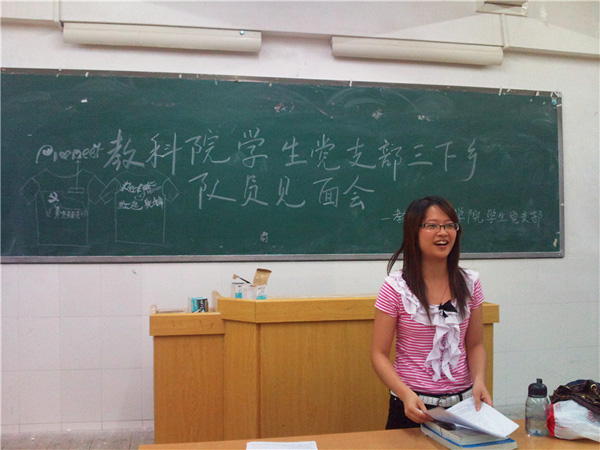 Pioneer
教科院学生党支部三下乡
队员见面会
学院学生党支部